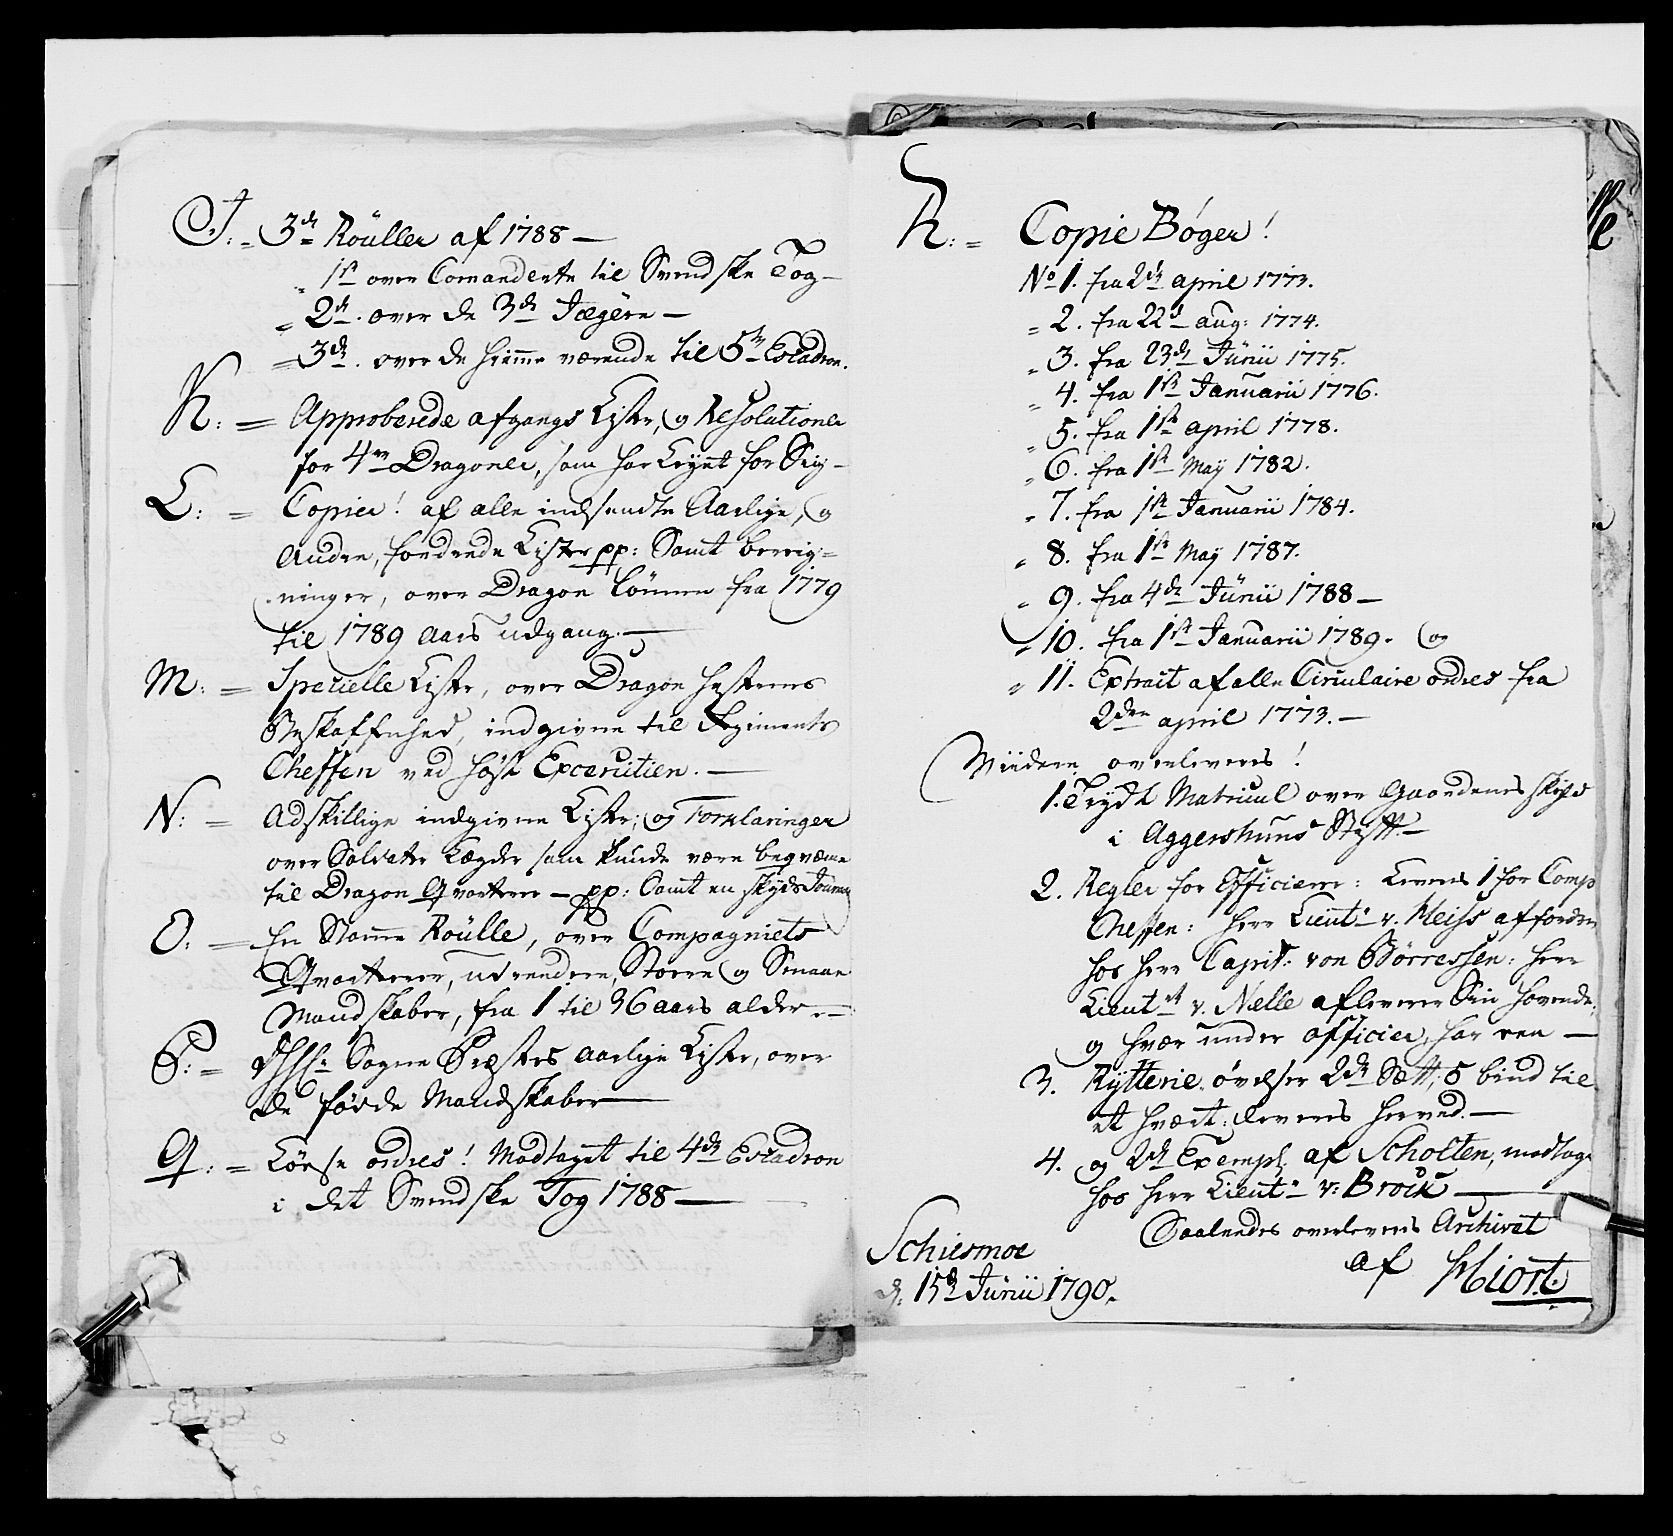 J. = 3de Roüller af 1788 —
" 1st over Comanderte til Svendske Tog —
" 2de over de 3de Jægere —
= 3de over de hiemme værende til 5te Escadron.
K: = Approberede afgangs Lister, og Resolutioner
for 4re Dragoner, som har Løjet for Sig —
L: = Copier! af alle indsendte Aarlige, og
Andre, fordrede Lister pp: Samt bereig=
ninger, over Dragon lönnen fra 1779
til 1789 Aars udgang. —
M: = Specielle Liste, over Dragon hestenes
Beskaffenhed, indgivne til Regiments
Cheffen ved höst Excerutien. —
N: = Adskillige indgivne Lister; og Forklaringer
over Soldater Lægder som kunde være beqvæme
til Dragon Qvarterer — pp: Samt en skyds Journal
O: = En Stamme Roülle, over Compagniets
Qvarterer, udrendere, Storre og Smaae
Mandskaber, fra 1 til 36 aars alder. —
P: = Sogne Præsters aarlige Lister, over
de fødde Mandskaber —
Q: = Löese ordres! Modtaget til 4de Escadron
i det Svendske Tog 1788 —
R: = Copie Bøger!
No 1. fra 2de april 1773.
" 2. fra 22d aug: 1774.
" 3. fra 23de Junii 1775.
" 4. fra 1st Januarii 1776.
" 5. fra 1st april 1778.
" 6. fra 1st May 1782.
" 7. fra 1st Januarii 1784.
" 8. fra 1st May 1787.
" 9. fra 4de Junii 1788 —
" 10. fra 1st Januarii 1789. og
" 11. Extrait af alle Circulaire ordres fra
2den april 1773. —
Viidere overleveres!
1. Trydt Matricul over Gaardenes skyld
i Aggershuus Stift. —
2. Regler for Officierer: Leveres 1 for Comp
Cheffen: Herr Lieut: v. Kleiss affordres
hos Herr Capit: von Börressen: Herr
Lieutnt v. Nelle afleverer Sin havende;
og hver under officier, har een —
3. Rytterie øvelser 2de Sætt; 5 bind til
et hvert: leveres herved. —
4. og 2de Exempl af Scholten, modtage
hos Herr Lieut: v: Brock —
Saaledes overleveres Archivet
af Hiort.
Schiesmoe
d: 15de Junii 1790.